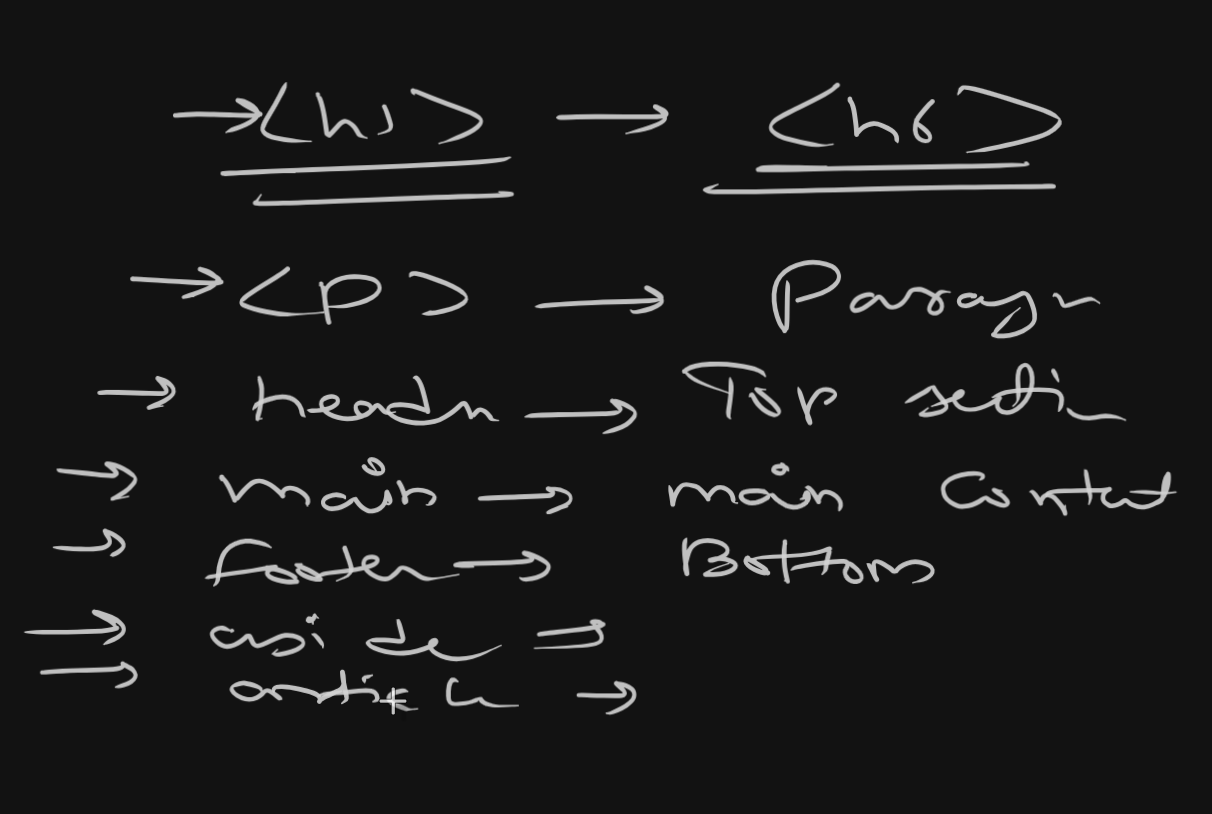 → <h1> → <h6>
→ <p> → Paragr
→ header → Top section
→ main → main Content
→ footer → Bottom
→ aside →
→ article →